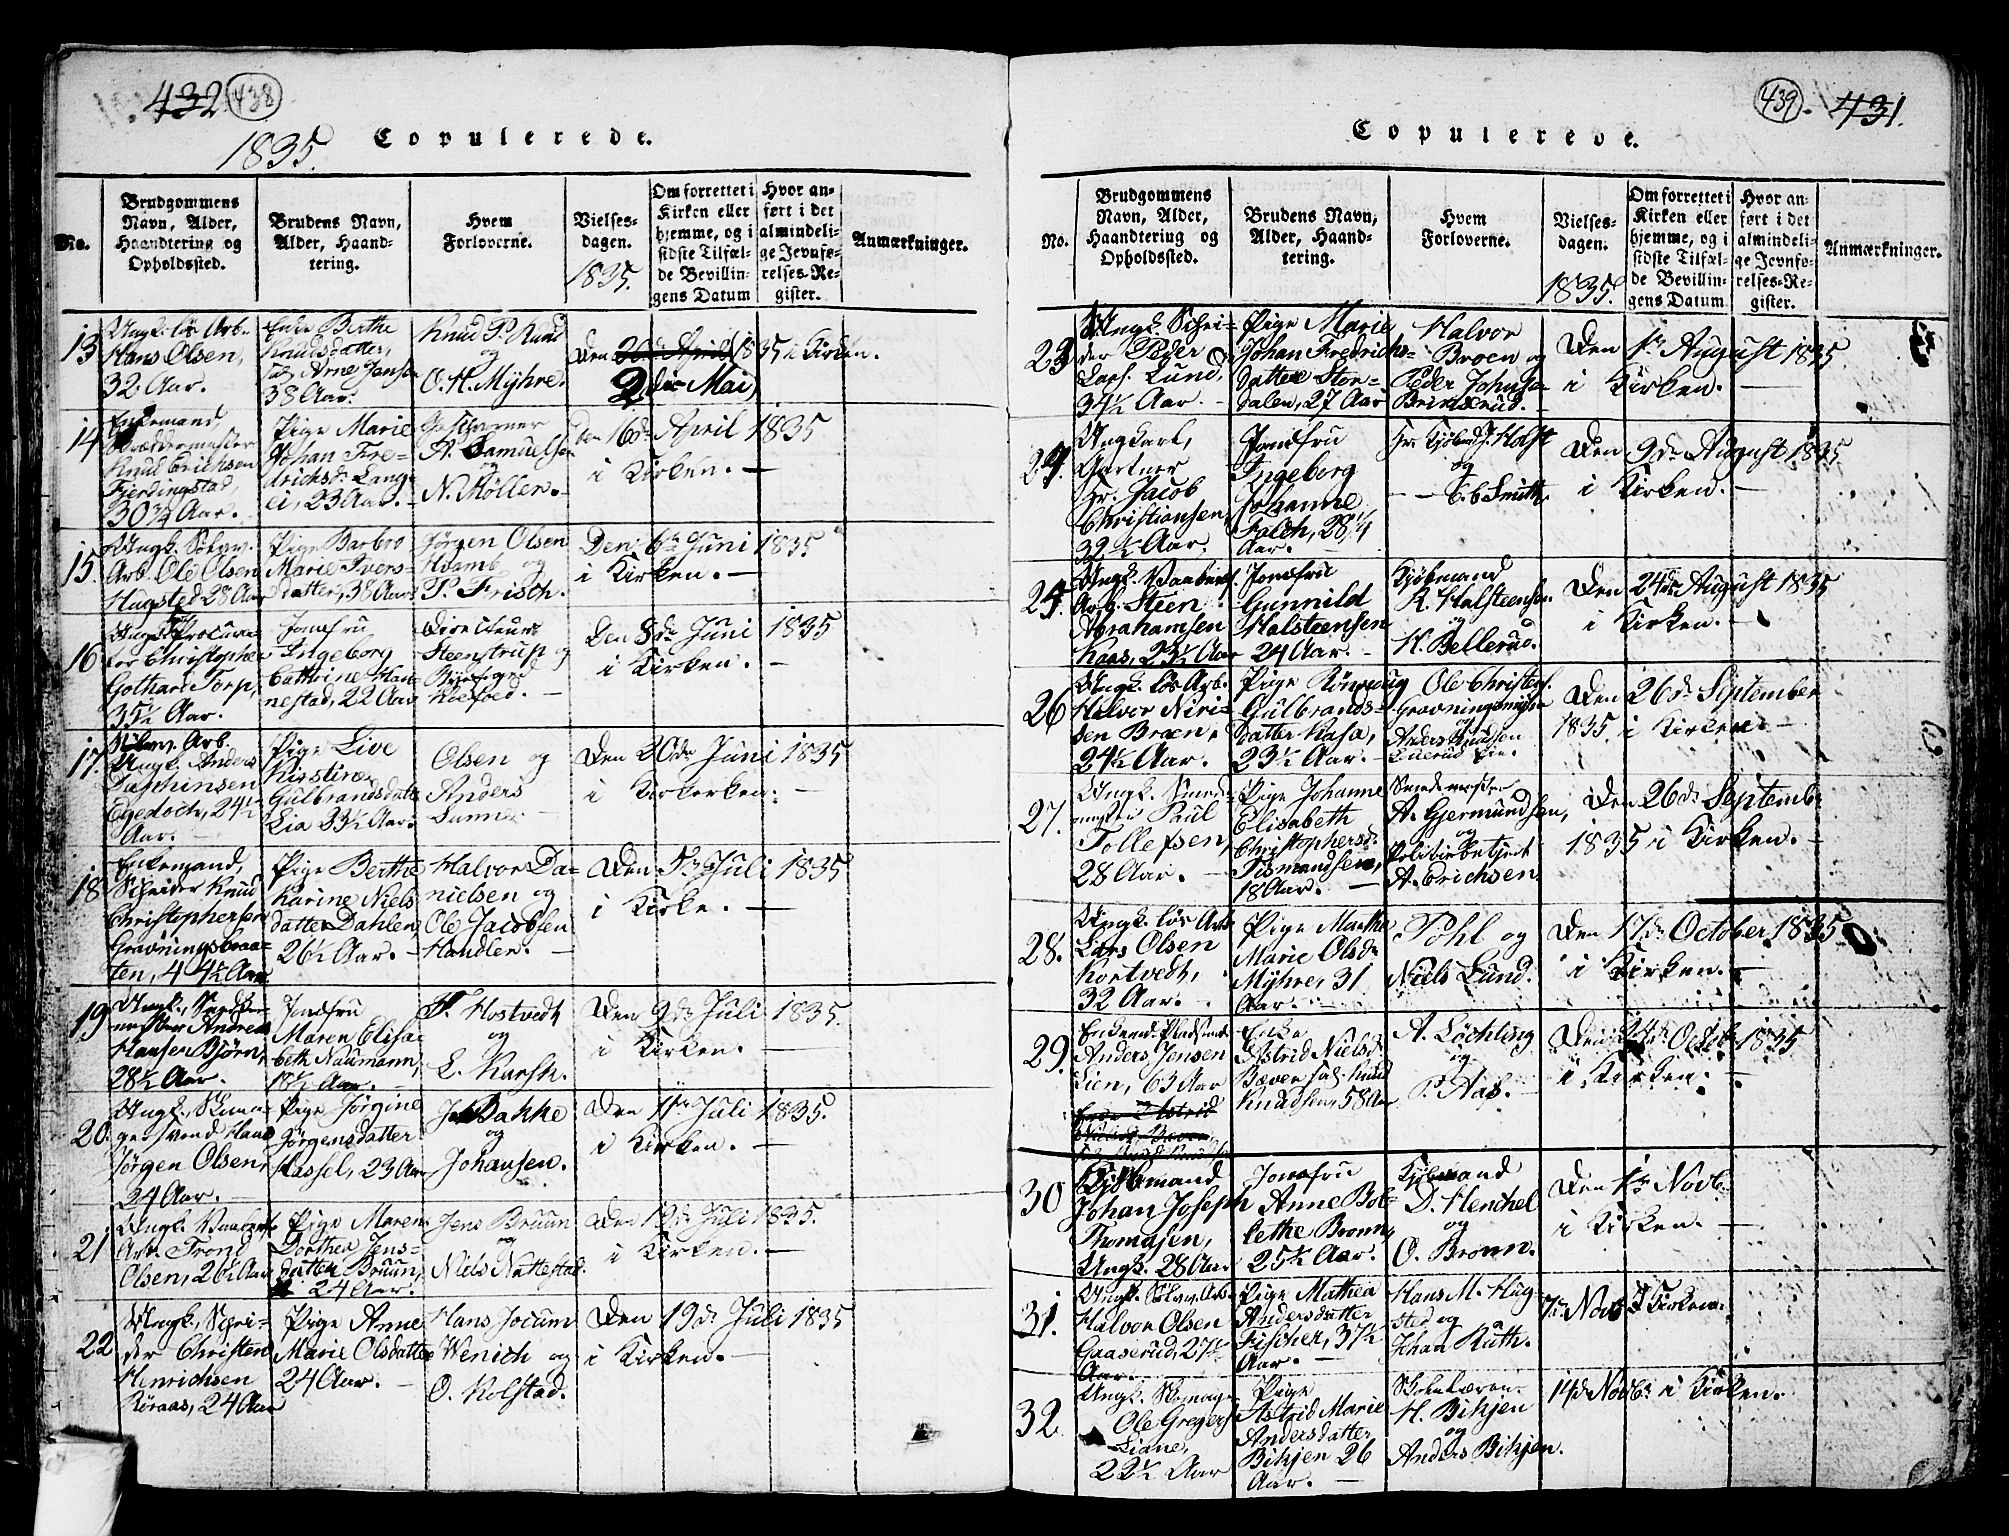 432 438
1835. Copulerede.
No.
Brudgommens Navn, Alder, Haandtering og Opholdssted.
Brudens Navn, Alder, Haandtering.
Hvem Forloverne.
Vielsesdagen. 1835.
Om forrettet i Kirken eller hjemme, og i sidste Tilfælde Bevillingens Datum
Hvor anført i det almindelige Jevnførelses-Register.
Anmærkninger.
13
Ungk. løs Arb. Hans Olsen, 32 Aar.
Enke Berthe Knudsdatter, Arne Jens 38 Aar.
Knud P. Ruud og O. H. Myhre.
Den 26de April 1835 i Kirken.
2den Mai
14
Enkemand, Skræddermester Knud Erichsen Fjerdingstad, 30¾ Aar.
Pige Marie Johan Fredrichsd. Langlei, 23 Aar.
A. Samuelsen og N. Møller.
den 16de April 1835 i Kirken.
15.
Ungk. Sølvv. Arb. Ole Olsen Hugsted 28 Aar
Pige Barbro Marie Iversdatter, 38 Aar
Jørgen Olsen Hvamb og P. Frisch.
Den 6te Juni 1835 i Kirken.
16
Ungk. Procurator Christopher Gothard Torp, 35½ Aar.
Jomfru Ingeborg Cathrine Hannestad, 22 Aar
Directeur Steenstrup og Byefoged
Den 8de Juni 1835 i Kirken.
17.
Sølvv. Arb. Ungk. Anders 24½ Aar.
Pige Live Kirstine Gulbrandsdatter Lia 33½ Aar.
Olsen og Anders Sunne.
Den 20de Juni 1835 i Kirkerken.
18
Enkemand, Scheider Knud Christophersen Gravningsbraaten, 44½ Aar.
Pige Berthe Karine Nielsdatter Dahlen, 26½ Aar.
Halvor Danielsen og Ole Jacobsen Handler.
Den 5te Juli 1835 i Kirke.
19
Ungk. Snedkermester Andreas Hansen Bjørn, 28½ Aar.
Jomfru Maren Elisabeth Naumann, 18½ Aar.
T. Hostvedt og L. Karsk.
Den 9de Juli 1835. i Kirken.
20.
Ungk. Hans Jørgen Olsen, 24 Aar.
Pige Jørgine Jørgensdatter Hassel, 23 Aar
J. Bakke og Johansen.
Den 11te Juli 1835. i Kirken.
21
Ungk. Vaabenf. Arb. Trond Olsen, 26½ Aar
Pige Maren Dorthea Jensdatter Bruun, 24 Aar.
Jens Bruun og Niels Nattestad.
Den 19de Juli 1835. i Kirken.
22
Ungk. Scheider Christen Henrichsen Røraas, 24 Aar
Pige Anne Marie Olsdatter 24 Aar.
Hans Jocum Wenich og O. Kolstad.
Den 19de Juli 1835 i Kirken.
439. 431.
Copulerede.
No.
Brudgommens Navn, Alder, Haandtering og Opholdssted.
Brudens Navn, Alder, Haandtering.
Hvem Forloverne.
Vielsesdagen. 1835.
Om forrettet i Kirken eller hjemme, og i sidste Tilfælde Bevillingens Datum
Hvor anført i det almindelige Jevnførelses-Register.
Anmærkninger.
23
Ungk. Scheider Peder Lars. Lund, 34½ Aar.
Pige Marie Johan Fredrichsdatter Stordalen, 27 Aar
Halvor Broen og Peder Johns. Brinkerud.
Den 1te August 1835 i Kirken.
24.
Ungkarl, Gartner Hr. Jacob Christiansen, 32½ Aar.
Jomfru Ingeborg Johanne Falch, 28¼ Aar.
Hr. Kjøbmd. J. Holst og C. C. Smith.
Den 9de August 1835. i Kirken.
25.
Ungk. Vaabenf. Arb. Steen Abrahamsen Kaas, 23½ Aar
Jomfru Gunnild Halsteensen 24 Aar.
Kjøbmand R. Halsteensen og H. Bellerud.
Den 24de August 1835 i Kirken.
26
Ungk. løs Arb. Halvor Niri sen Broen, 24½ Aar.
Pige Rønnaug Gulbrandsdatter Kasa, 23½ Aar.
Ole Christens. Gravningsmyhr og Anders Knudsen
Den 26de September 1835. i Kirken.
27.
Ungk. Paul Tollefsen, 28 Aar.
Pige Johanne Elisabeth Christophersd. Tismandsen, 18 Aar.
A. Gjermundsen, og Politiebetjent A. Erichsen
Den 26de Septemb. 1835 i Kirken.
28.
Ungk. løs Arb. Lars Olsen Kortvedt, 32 Aar.
Pige Marthe Marie Olsd. Myhre, 31 Aar.
Pohl og Niels Lund.
Den 17de October 1835 i Kirken.
29.
Enkemd. Pladsmd. Anders Jensen Lien, 63 Aar
Enke Astrid Nielsd. Bæver sal. Knud Knudsen, 58 Aar
A. Løchling og P. Aas.
Den 24de Octob. 1835 i Kirken.
30
Kjøbmand Johan Joseph Thomasen, Ungk. 28 Aar
Jomfru Anne Bolethe Bronn, 25¾ Aar.
Kjøbmand D. Henchel og O. Bronn.
Den 1te Novbr. i Kirken.
31.
Ungk. Sølvv. Arb. Halvor Olsen Gaaserud, 27½ Aar.
Pige Mathea Andersdatter Fischer, 37½ Aar.
Hans M. Hugsted og Johan Ruth.
7de Novb. I Kirken.
32.
Ungk. Skomag. Ole Gregers. Liane, 22½ Aar
Pige Astrid Marie Andersdatter Bihjen 26 Aar.
Skolelærer H. Bihjen og Anders Bihjen.
14de Novbr. i Kirken.